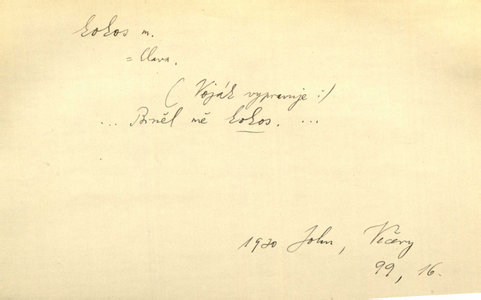 kokos m.
= hlava.
( Voják vypravuje :/
... Brněl mě kokos. ...
1920 John, Večery
99, 16.